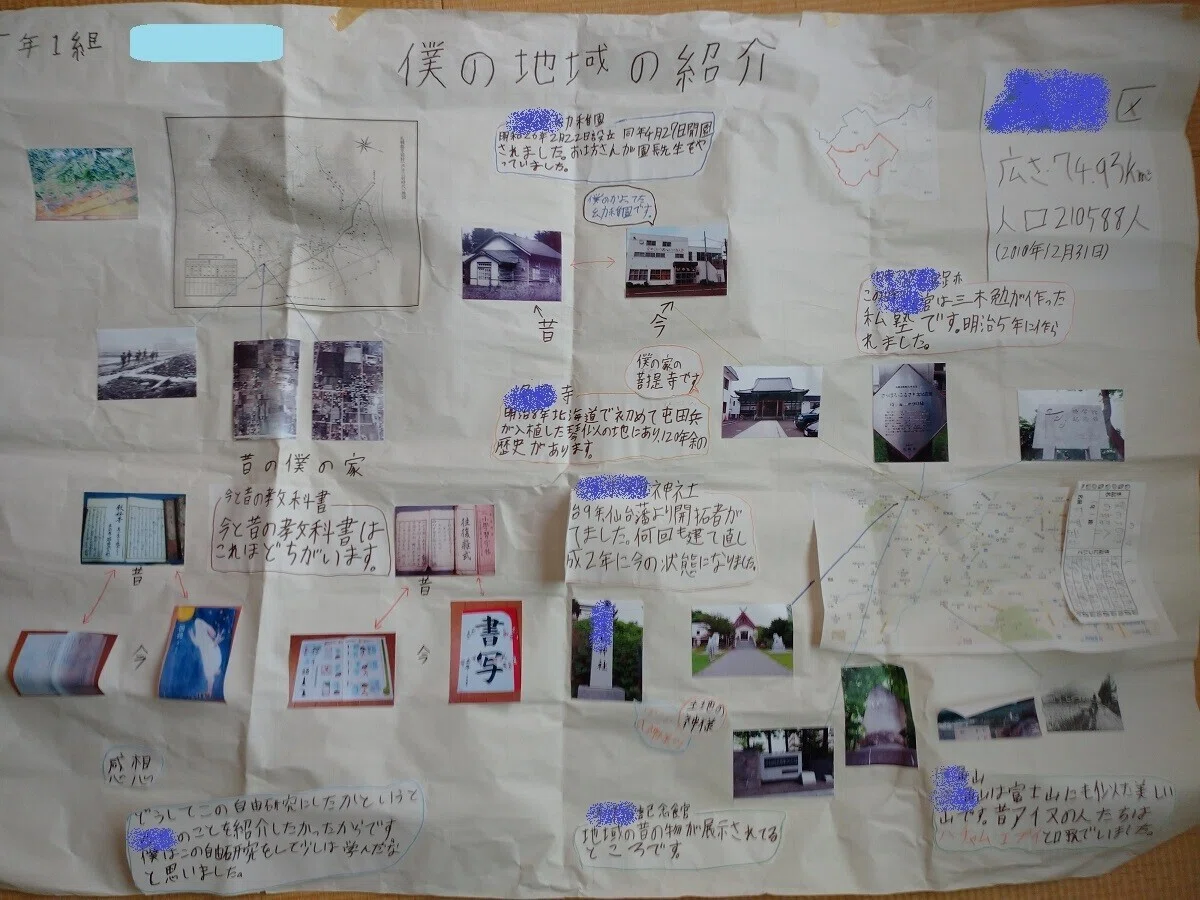 年1組
僕の地域の紹介
区
広さ・74.93km²
人口210588人
(2010年12月31日)
幼稚園
昭和26年2月22日設立 同年4月27日開園
されました。お坊さんが園長先生をや
っていました。
僕のかよってた
幼稚園です。
昔
今
は三木勉が作った
私塾です。明治5年に作ら
れました。
僕の家の
菩提寺です
寺
明治8年北海道で初めて屯田兵
が入植した琴似の地にあり120年余の
歴史があります。
昔の僕の家
今と昔の教科書
今と昔の教科書は
これほどちがいます。
昔
今
昔
今
書写
神社
台9年仙台藩より開拓者が
てました。何回も建て直し
成2年に今の状態になりました。
神社
土地の
神様
感想
どうしてこの自由研究にしたかというと
のことを紹介したかったからです
僕はこの自由研究をして少しは学んだな
と思いました。
記念館
地域の昔の物が展示されてる
ところです。
山
山は富士山にも似た美しい
山です。昔アイヌの人たちは
と呼でいました。